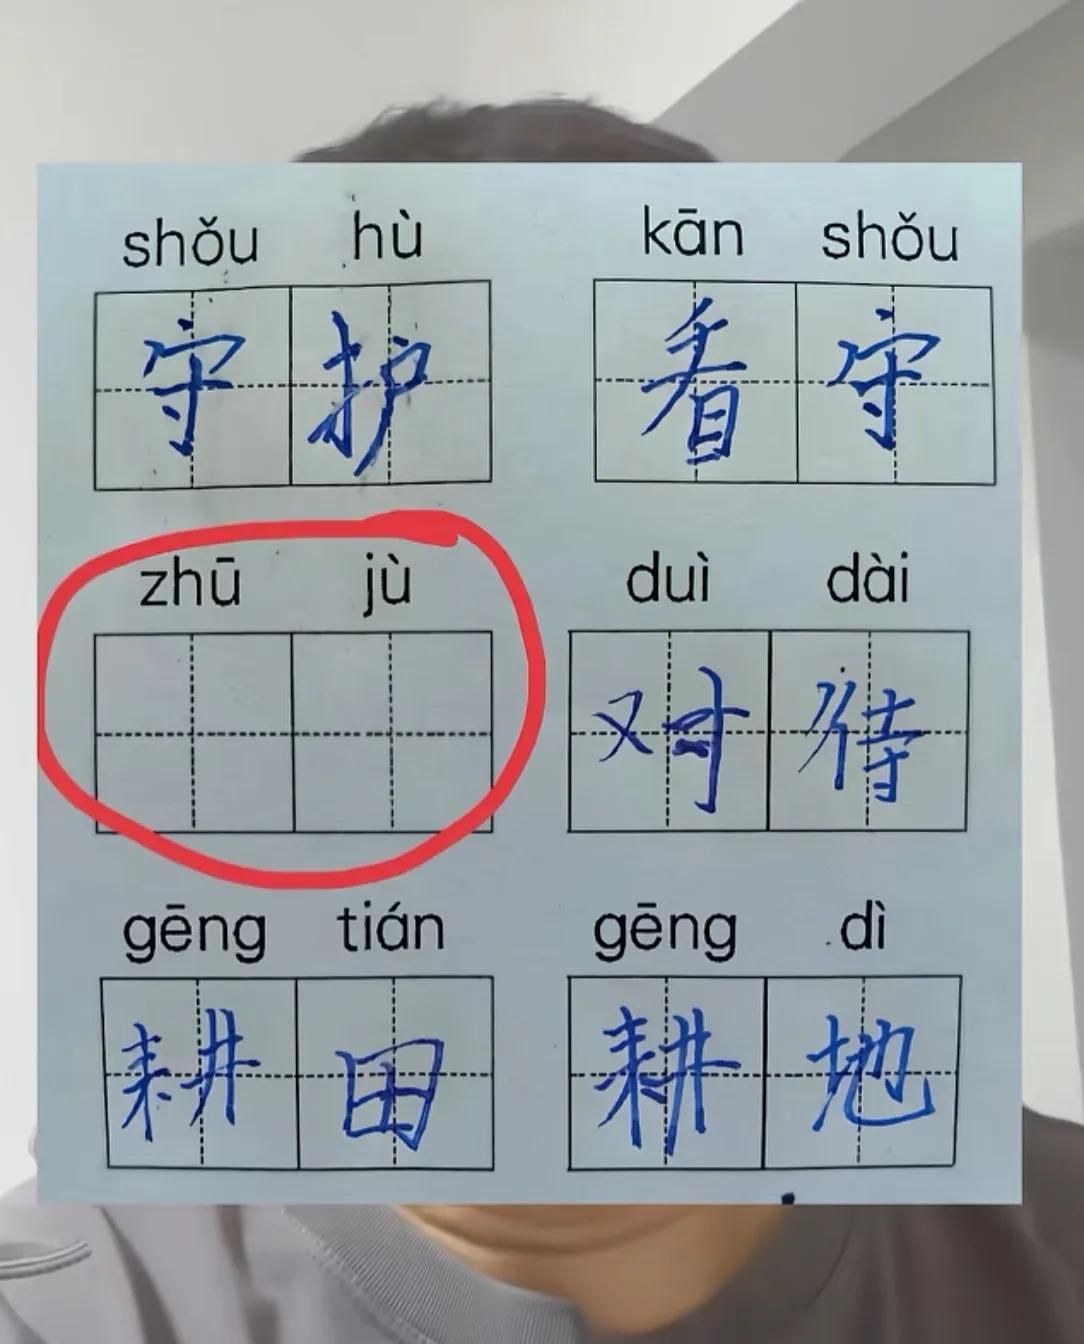 shǒu hù kān shǒu
守护 看守
zhū jù duì dài
对待
gēng tián gēng dì
耕田 耕地